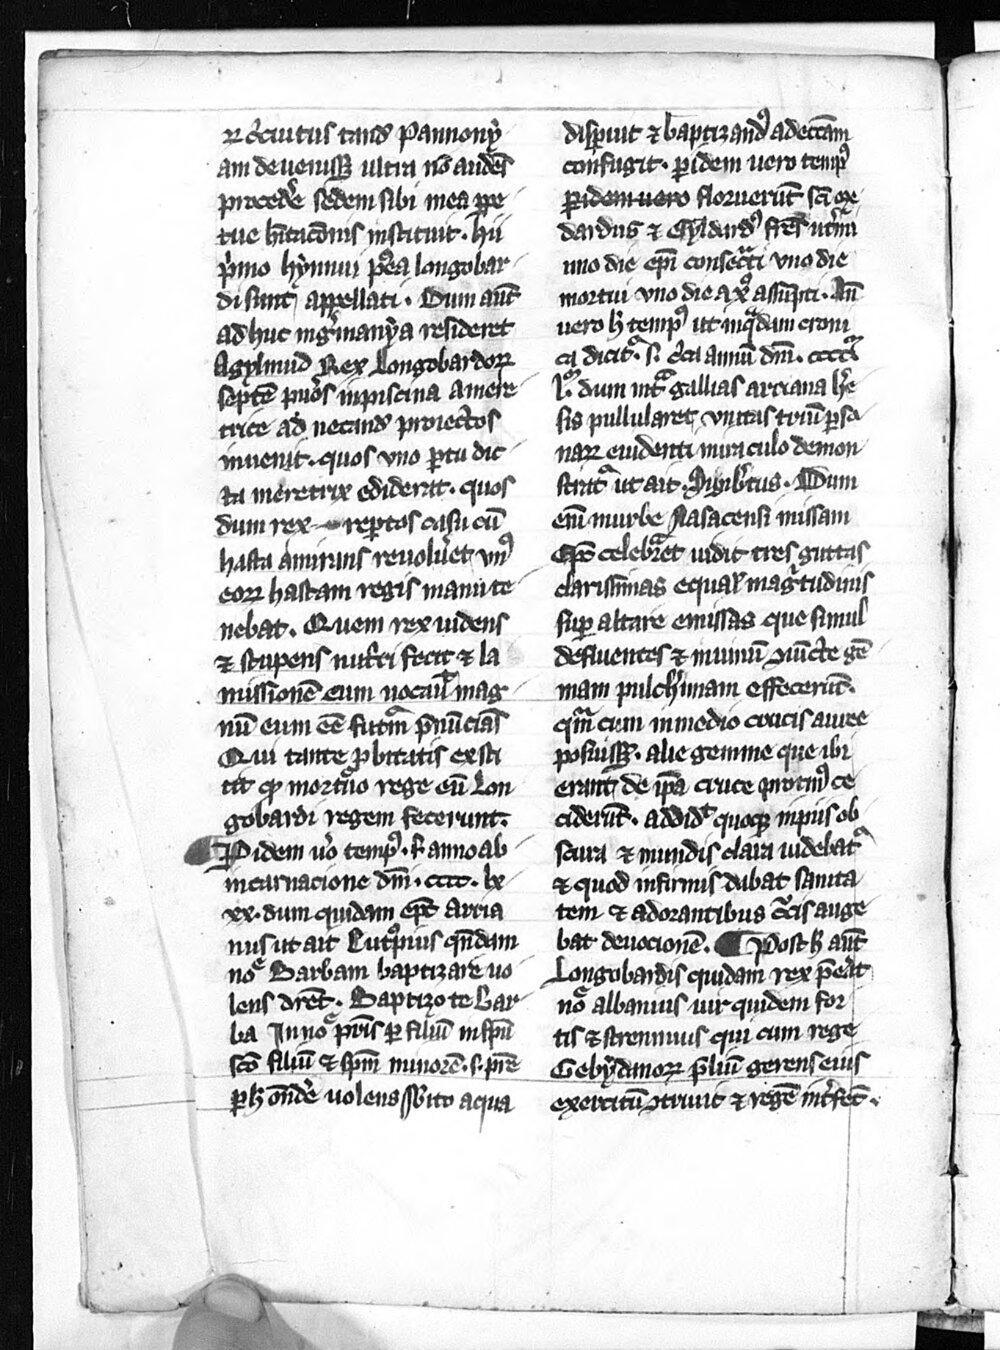 ꝛ ctiuitus tand' Pannony
am deuenissꝫ ultra nō audēs
procedẽ sedem sibi in ea ppe
tue h̄itacōnis instituit. hii
pⁱmo hynnui p̄ea longobar
di sunt appellati. Dum aūt
adhuc in gⁱmanya resideret
Agylmud Rex Longobardoꝝ
septē puͦs in piscina a mere
trice ad necand' proiectos
inuenit. quos vno p̱tu dic
ta meretrix ediderat. quos
dum rex rep̱tos casu cū
hasta amirans reuolũet vnꝰ
eoꝝ hastam regis manu te
nebat. Quem rex uidens
⁊ stupens nutⁱri fecit ⁊ la
missionē eum uocauit mag
nū eum eē futūm p̄nūciās
Qui tante ꝓbitatis exsti
tit ꝙ mortuo rege eū Lon
gobardi regem fecerunt.
P̱ idem ũo tempꝰ .s. anno ab
incarnacione dn̄i. cccc. lx
xx. dum quidam ep̄c arria
nus ut ait Eutͦpius qn̄dam
noͤ Barbam baptizare uo
lens dr̄et. Baptizo te Bar
ba In noͤ pr̄is p̱ filiū in sp̄u
sc̄o filiū ⁊ sp̄m minorē .s. pr̄e
p̱ h̄ ondẽ uolens s̄bito aqua
disparuit ⁊ baptizandꝰ ad ecc̄am
confugit. p̱ idem uero tempꝰ
p̱ idem uero floruerūt sc̄i me
dardus ⁊ Gyldardꝰ frēs uteⁱni
uno die ep̄i consecᵃti vno die
mortui vno die a xͦ assūpti. An̄
uero h̄ tempꝰ ut in qᵃdam croni
ca dicitᵣ .s. cͥca annū dn̄i. ccccͫ
lͫ. dum intᵃ gallias arriana h̄e
sis pullularet, vnitas triū p̱so
naꝝ euidenti miraculo demon
stratᵣ ut ait Sigib̄tus. Dum
em̄ in urbe Nasacensi missam
Ep̄c celebᵃret uidit tres guttas
clarissimas equaľ magⁱtudinis
sup̱ altare emissas que simul
defluentes ⁊ inuicē ꝯiuncte gē
mam pulch̄rimam effecerūt.
qᵃm cum in medio crucis auree
posuissꝫ. alie gemme que ibi
erant de ip̄a cruce protinꝰ ce
ciderūt. addidᵗ quoqꝫ inpiis ob
scura ⁊ mundis clara uidebatᵣ
⁊ quod infirmis dabat sanita
tem ⁊ adorantibus cͧcis auge
bat deuocionē. Post h̄ aūt
Longobardis quidam rex p̄eᵃt
noͤ albanius uir quidem for
tis ⁊ strennuus qui cum rege
Gebydanoꝝ p̄liū gerens eius
exercitū ꝯtriuit ⁊ regē int̄fec̄.